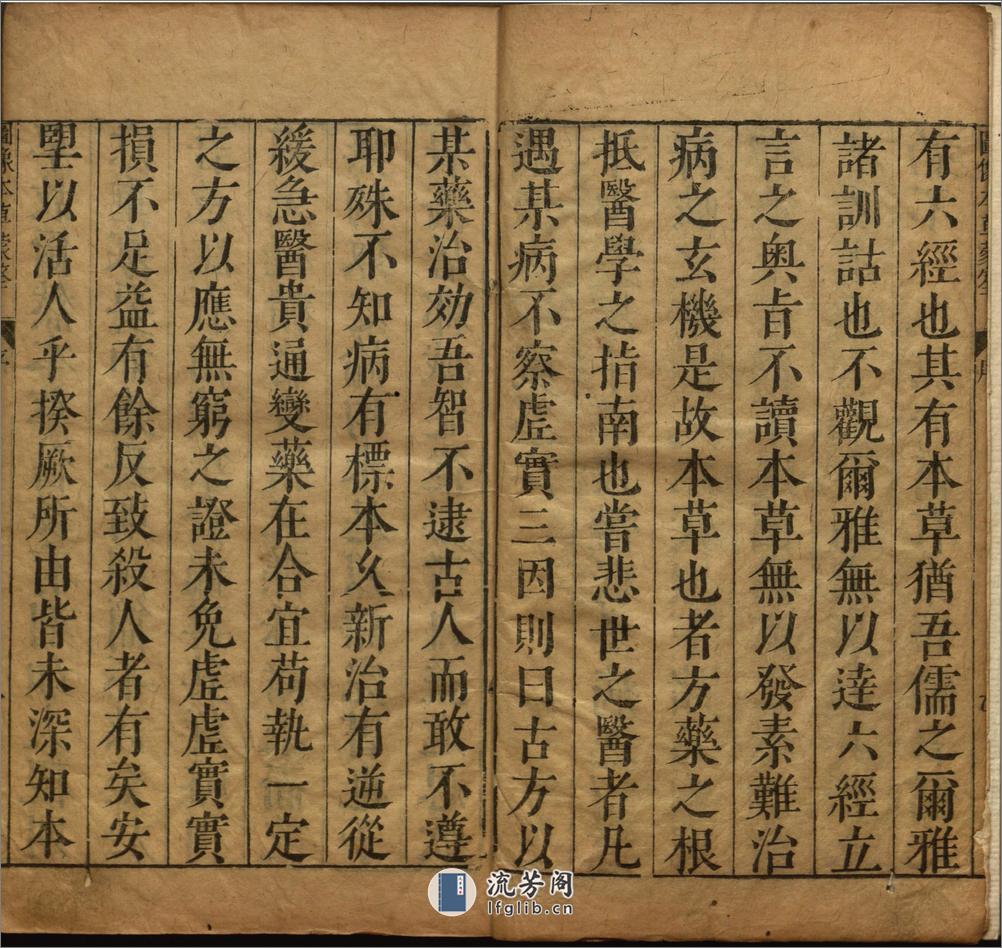 有六經也其有本草猶吾儒之爾雅
諸訓詁也不觀爾雅無以逹六經立
言之奥㫖不讀本草無以發素難治
病之玄機是故本草也者方藥之根
抵醫學之指南也嘗悲世之醫者凡
遇某病不察虛實三因則曰古方以
某藥治効吾智不逮古人而敢不遵
耶殊不知病有標本久新治有逆從
緩急醫貴通變藥在合宜苟執一定
之方以應無窮之證未免虛虛實實
損不足益有餘反致殺人者有矣安
朢以活人乎揆厥所由皆未深知本
流芳阁
lfglib.cn